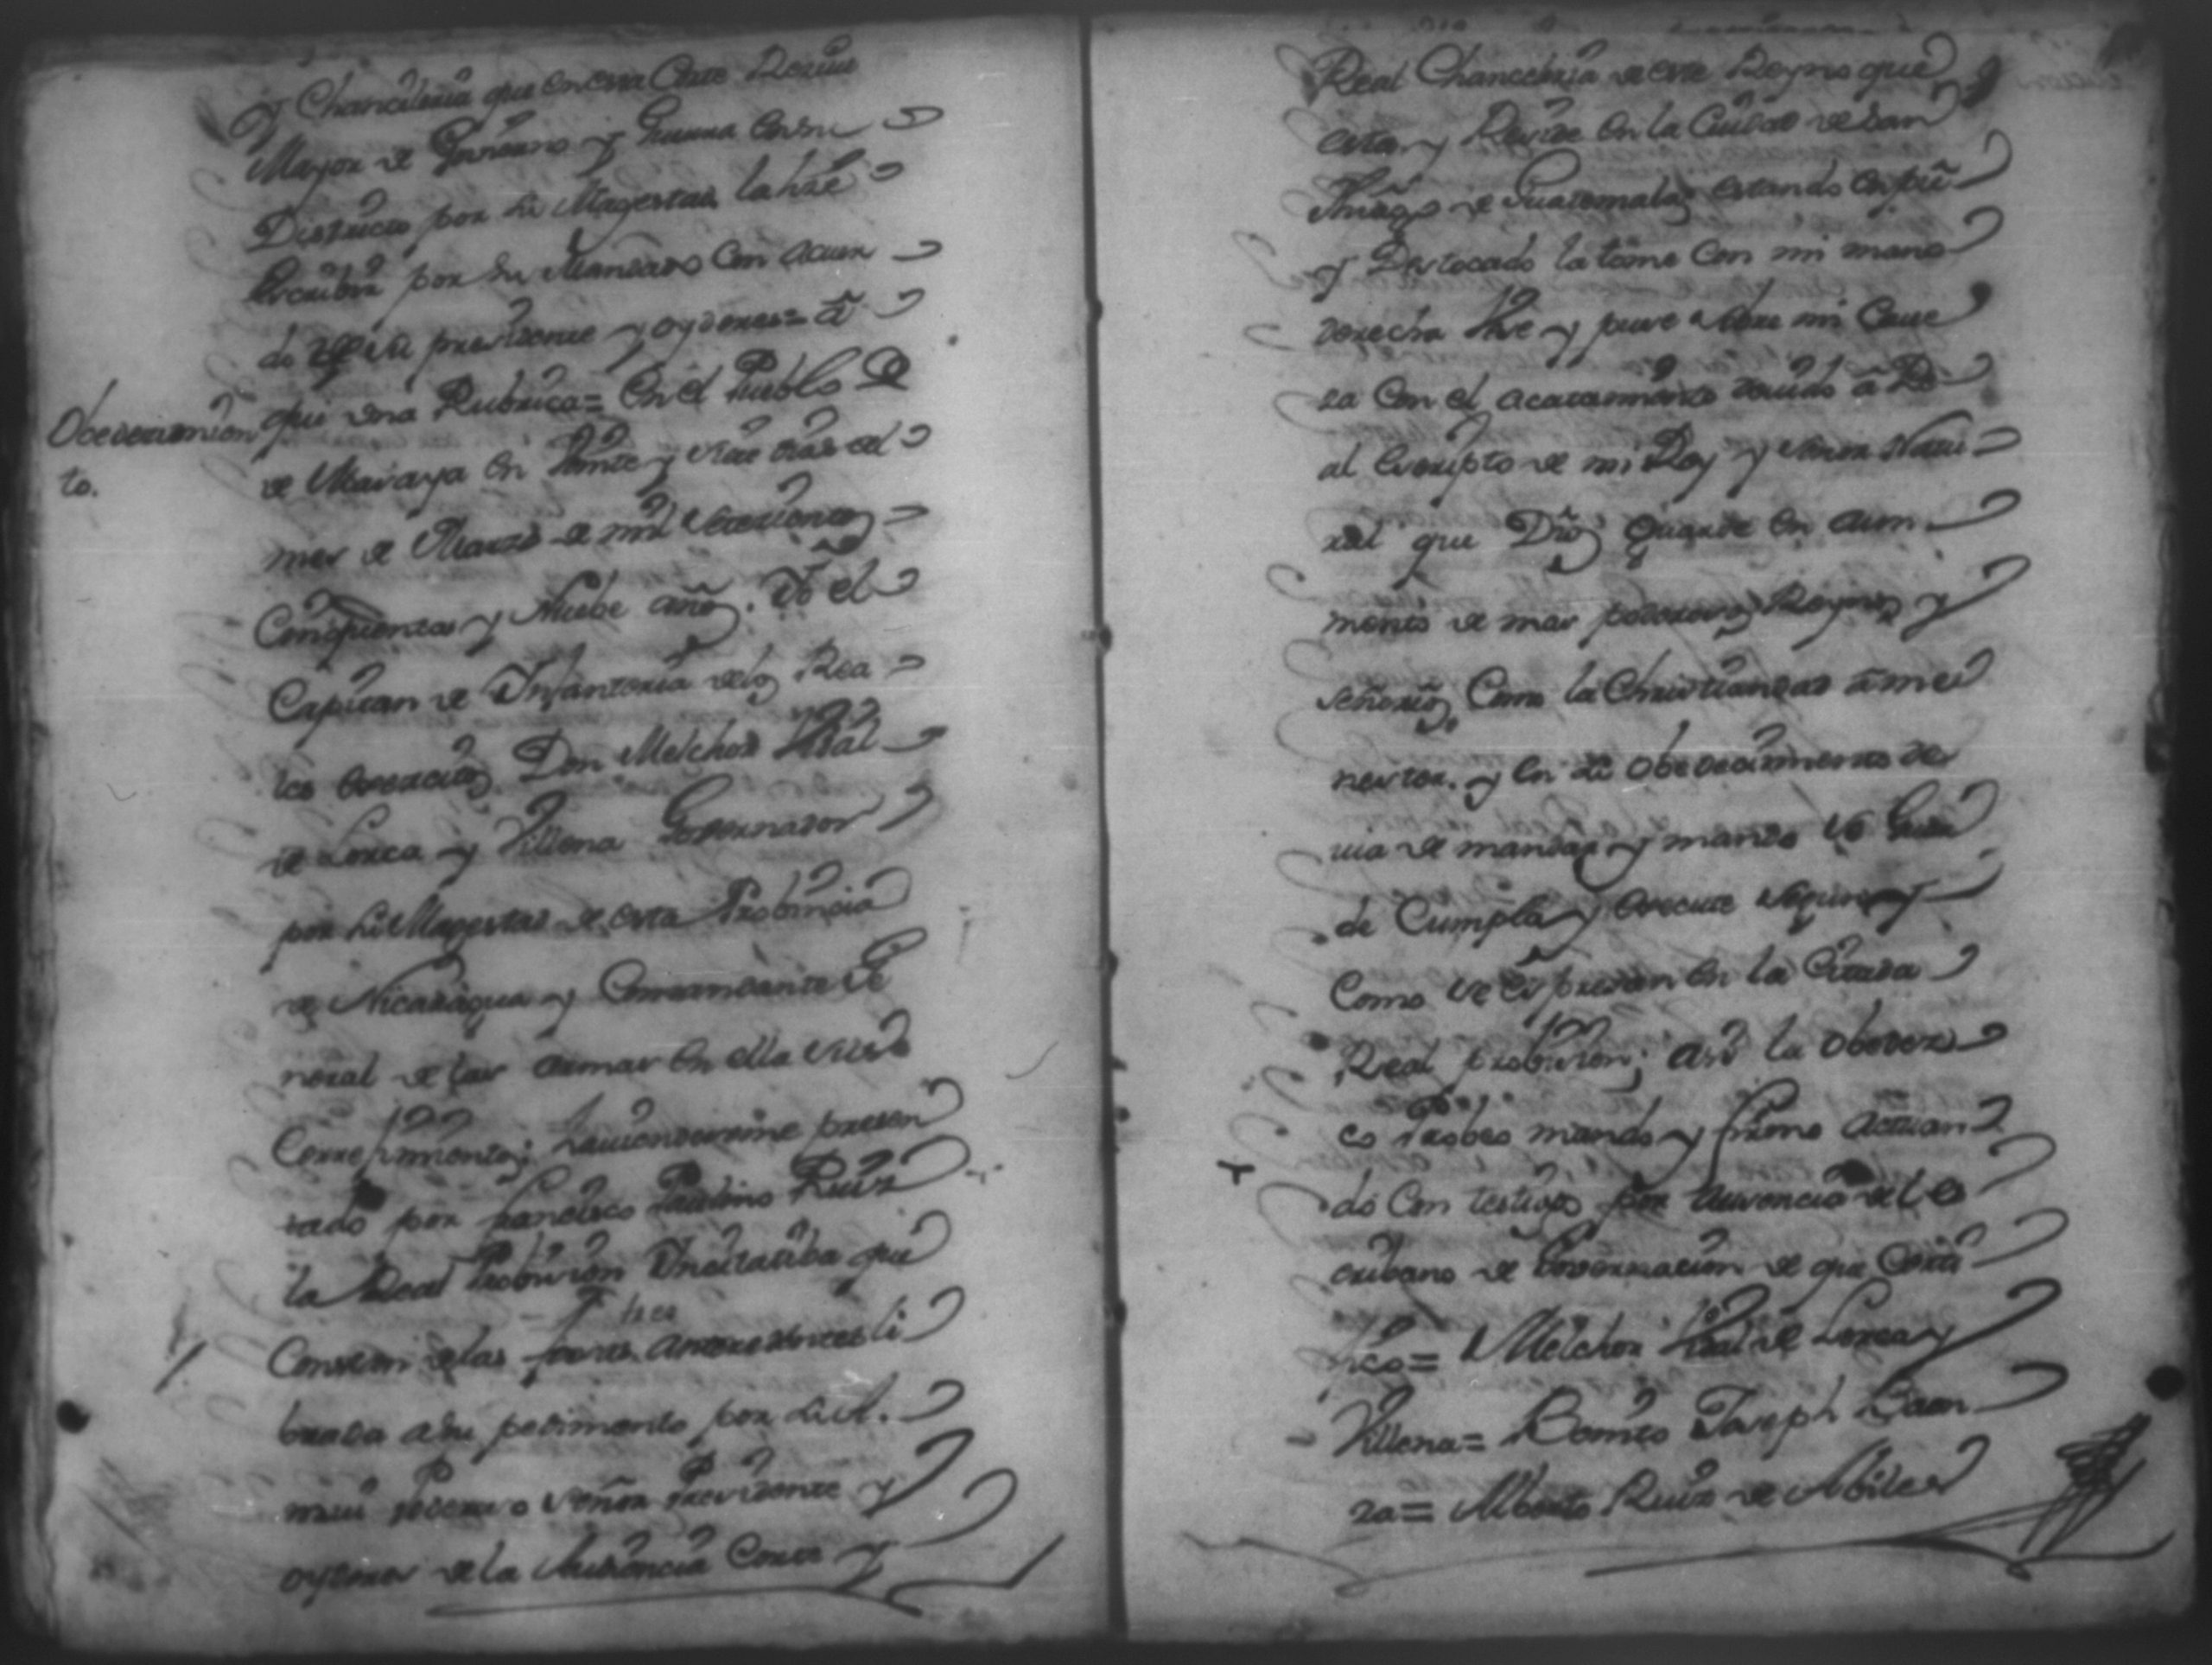 y Chancilleria que en esta Corte Recide
Mayor de Govierno y Guerra en su
Districto por su Magestad la hize
Escribir por su Mandado con acuer
do de su presidente y oydores= a
qui una Rubrica= En el Pueblo de
Obedecimien
to.
de Masaya en Veinte y siete dias del
mes de Marzo de mil setecientos
Cinquenta y Nuebe años. Yo el
Capitan de Infanteria delos Rea
les exercitos Don Melchor Vidal
de Lorca y Villena Governador
por su Magestad de esta Probincia
de Nicaragua y Comandante Ge
neral de las armas en ella y sus
Correximientos; haviendoseme presen
tado por Francisco Paulino Ruiz
la Real Probision Incitatiba que
Consta en las fojas tres antecedentes li
brada a su pedimento por su A.
mui poderoso señor Precidente y
oydores de la Audiencia Corte y
Real Chancilleria de este Reyno que
esta y Reside en la Ciudad de San
tiago de Guatemala, estando en pie
y Destocado la tome con mi mano
derecha Vese y puse sobre mi Cave
za con el acatamiento devido a Re
al Escripto de mi Rey y señor Natu
ral que Dios Guarde en aum
mento de mas poderosos Reynos y
señorios Como la Christiandad a me
nester. y en su obedecimiento de
via de mandar y mando se Guar
de Cumpla y execute segun y
Como se espresa en la Citada
Real probision; asi la obedez
co Probeo mando y firmo actuan
do Con testigos por ausencia del es
cribano de Governacion de que Certi
fico= Melchor Vidal de Lorca y
Villena= Benito Joseph Baen
za= Alberto Ruiz de Abiles